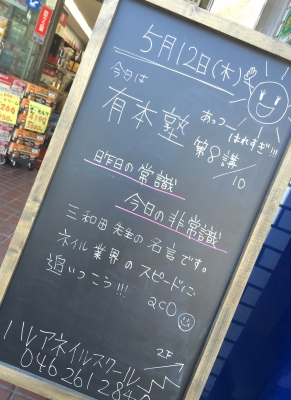 5月12日(木)
今日は
有本塾
あっつ
はれすぎ!!!
第8講/10
昨日の常識
今日の非常識
三和田先生の名言です。
ネイル業界のスピードに
追いつこう!!!
aco
2F
ハレアネイルスクール
046 261 2840